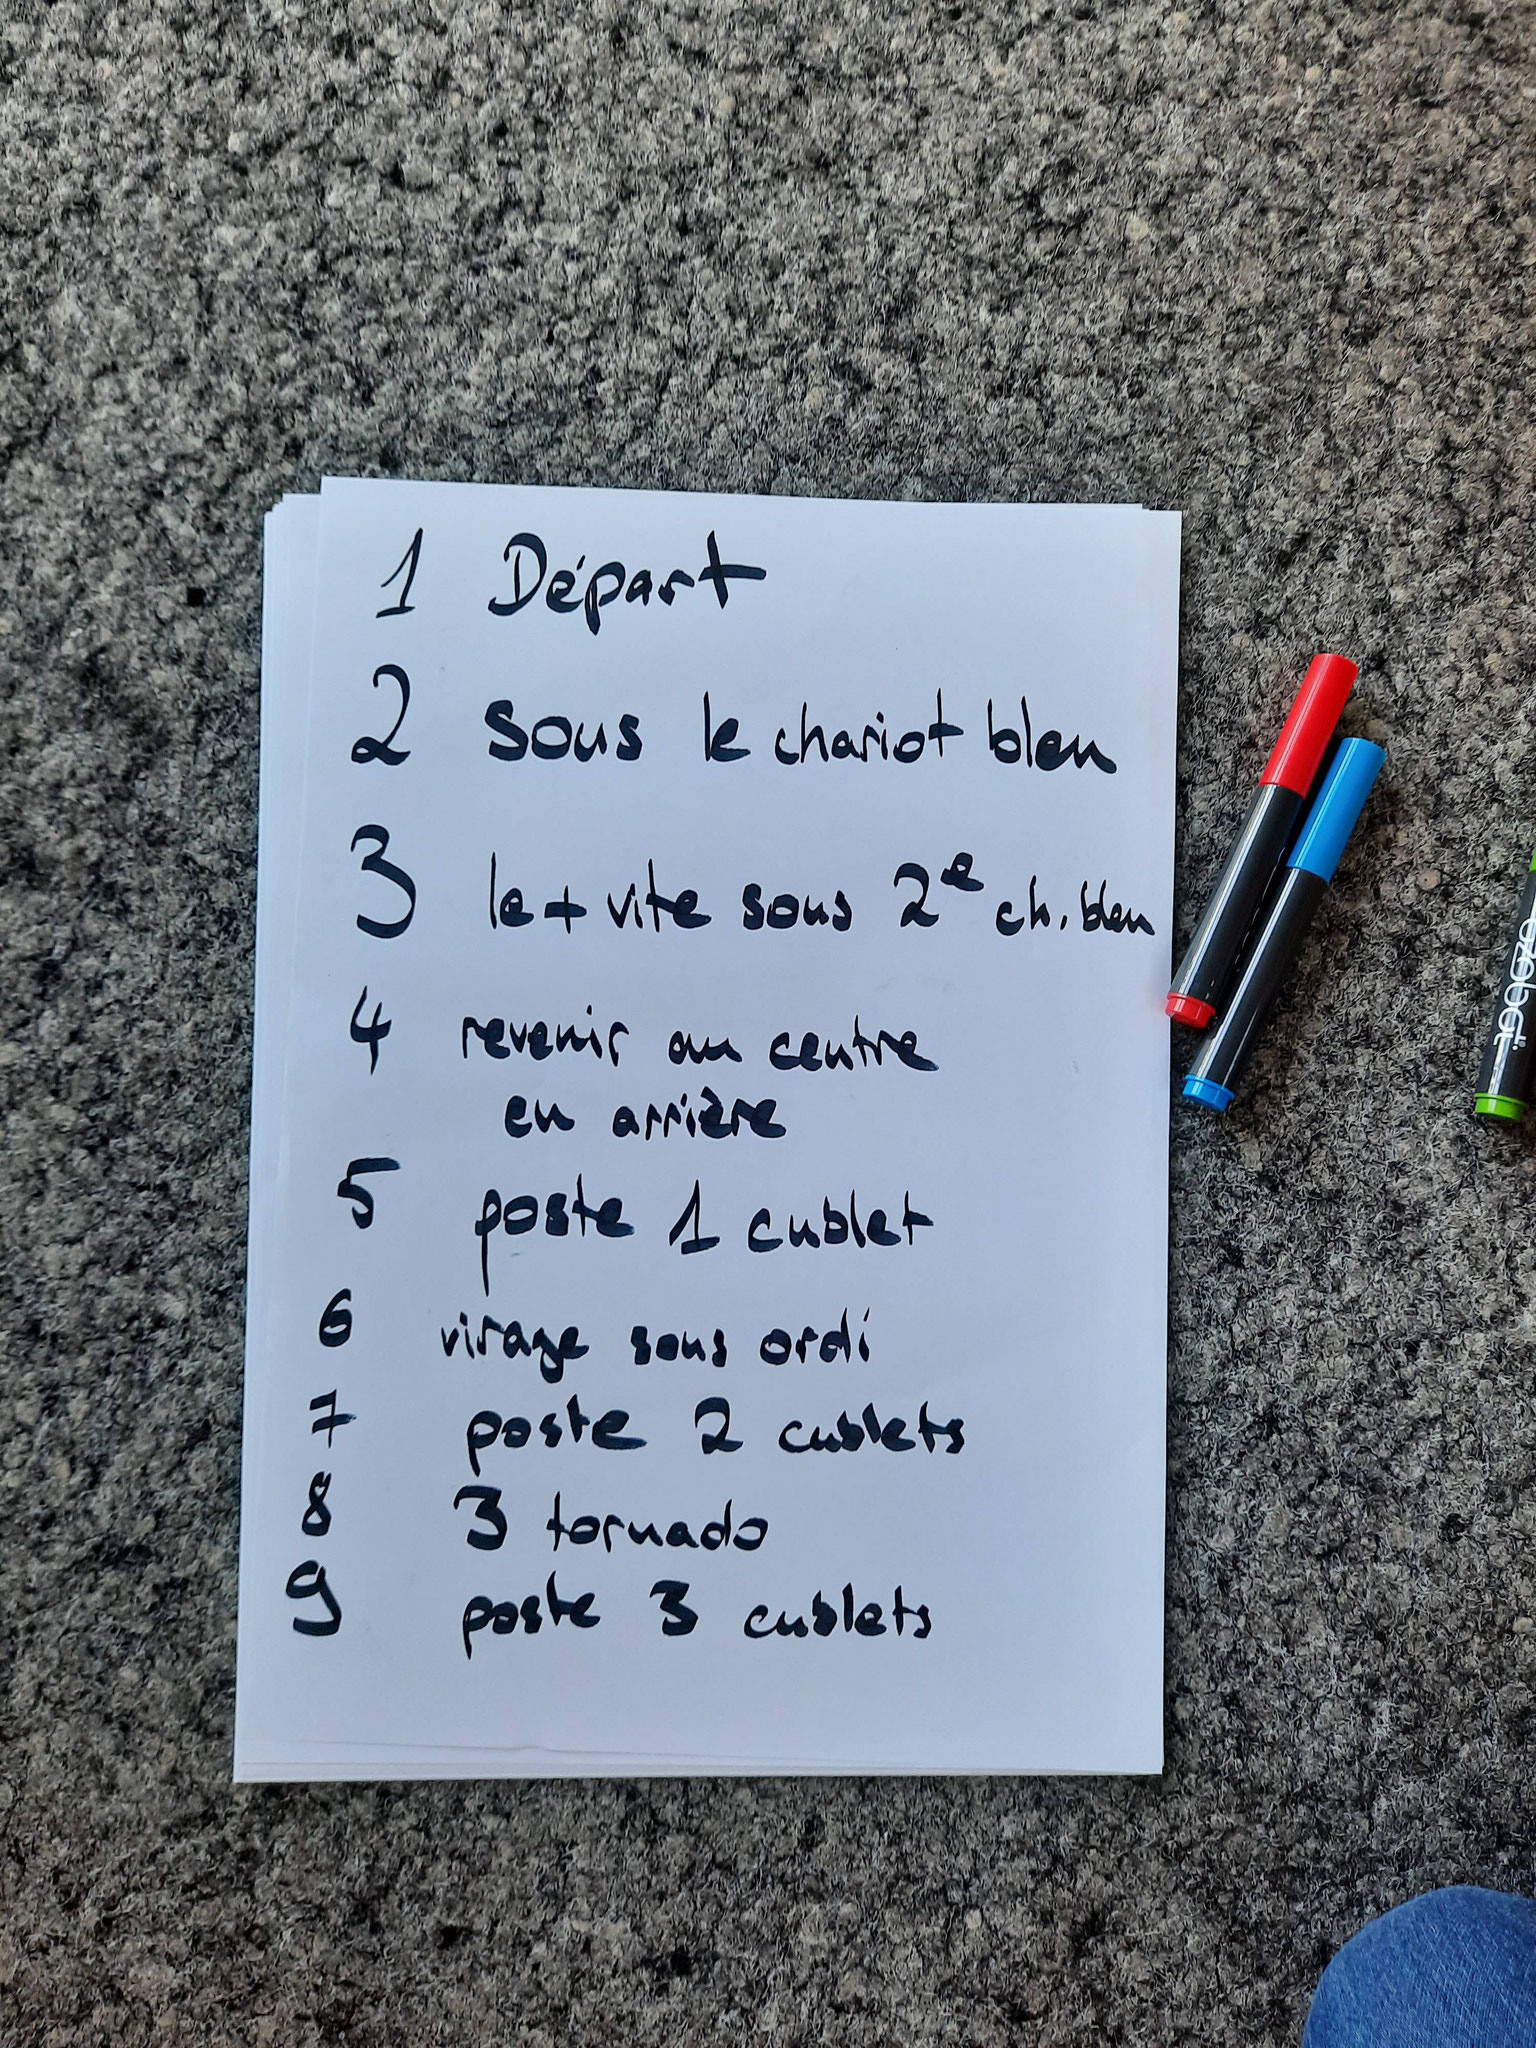 1 Départ
2 sous le chariot bleu
3 le + vite sous 2e ch. bleu
4 revenir au centre
en arrière
5 poste 1 cublet
6 virage sous ordi
7 poste 2 cublets
8 3 tornado
9 poste 3 cublets
ozobot